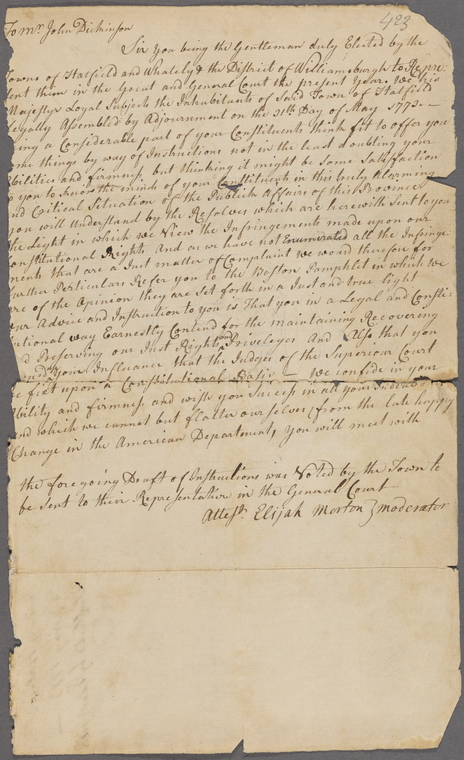 423
To Mr John Dickinson
Sir you being the Gentleman duly Elected by the
Towns of Hatfield and Whately & the District of Williamsburgh to Repre
sent them in the Great and General Court the present year. We his
Majestys Loyal Subjects the Inhabitants of Said Town of Hatfield
Legally Assembled by Adjournment on the 31th Day of May 1773 —
being a Considerable part of your Constituents think fit to offer you
some things by way of Instructions not in the least doubting your
Abilities and firmness but thinking it might be Some Satisfaction
to you to know the mind of your Constituents in this truly Alarming
and Critical Situation of the Publick Affairs of this Province
you will Understand by the Resolves which are herewith Sent to you
the Light in which we View the Infringements made upon our
Constitutional Rights And as we have not Enumerated all the Infringe
ments that are a Just matter of Complaint we would therefore for
further Particulars Refer you to the Boston Pamphlet in which we
are of the Opinion they are Set forth in a Just and true light
Our Advice and Instruction to you is That you in a Legal and Consti
tutional way Earnestly Contend for the maintaining Recovering
and Preserving our Just Rights and Priveleges And Also that you
your Influance that the Judges of the Superiour Court
be fixt upon a Constitutional Basis We confide in your
Ability and firmness and wish you Success in all your
and which we cannot but flatter ourselves (from the late happy
Change in the American Department) you will meet with
the foregoing Draft of Instructions was Voted by the Town to
be Sent to their Representative in the General Court
Attest. Elijah Morton } moderator